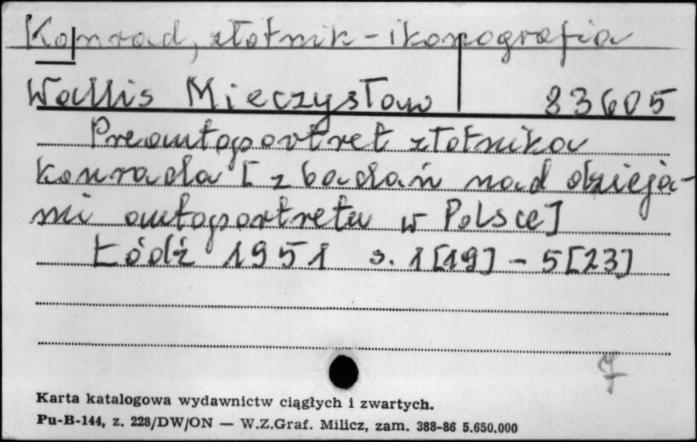 Konrad, złotnik - ikonografia
Wallis Mieczysław 83605
Preautoportret złotnika
Konrada [z badań nad dzieja-
mi autoportretu w Polsce]
Łódź 1951 s. 1[19] - 5[23]
7
Karta katalogowa wydawnictw ciągłych i zwartych.
Pu-B-144, z. 228/DW/ON — W.Z.Graf. Milicz, zam. 388-86 5.650.000